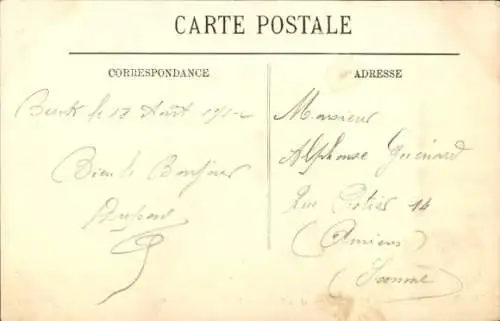 CARTE POSTALE
CORRESPONDANCE
ADRESSE
Berck le 17 Août 1912
Bien le Bonjour
Monsieur
Alphonse Guénard
Rue 14
(Amiens)
(Somme)